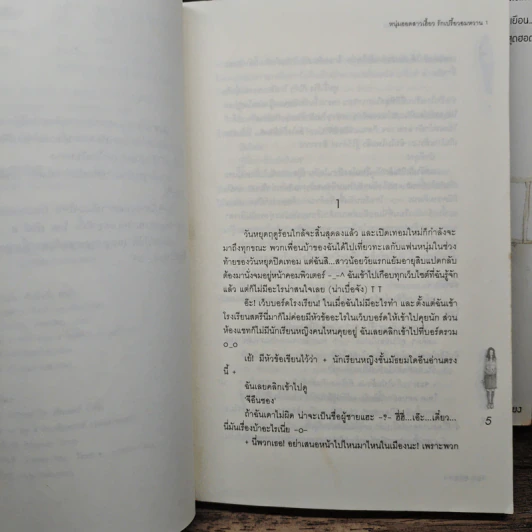 หนุ่มฮอตสาวเฮี้ยว รักเปรี้ยวอมหวาน 1
1
วันหยุดฤดูร้อนใกล้จะสิ้นสุดลงแล้ว และเปิดเทอมใหม่ก็กำลังจะ
มาถึงทุกขณะ พวกเพื่อนบ้าของฉันได้ไปเที่ยวทะเลกับแฟนหนุ่มในช่วง
ท้ายของวันหยุดปิดเทอม แต่ฉันสิ...สาวน้อยวัยแรกแย้มอายุสิบแปดกลับ
ต้องมานั่งจมอยู่หน้าคอมพิวเตอร์ -_-^ ฉันเข้าไปเกือบทุกเว็บไซต์ที่ฉันรู้จัก
แล้ว แต่ก็ไม่มีอะไรน่าสนใจเลย (น่าเบื่อจัง) T T
อ๊ะ! เว็บบอร์ดโรงเรียน! ในเมื่อฉันไม่มีอะไรทำ และตั้งแต่ฉันเข้า
โรงเรียนสตรีนี่มาก็ไม่ค่อยมีหัวข้ออะไรในเว็บบอร์ดให้เข้าไปคุยนัก ส่วน
ห้องแชทก็ไม่มีนักเรียนหญิงคนไหนคุยอยู่ ฉันเลยคลิกเข้าไปที่บอร์ดรวม
O_O
เย้! มีหัวข้อเขียนไว้ว่า + นักเรียนหญิงชั้นมัธยมโดอึนอ่านตรง
นี้ +
ฉันเลยคลิกเข้าไปดู
'จีอึนซอง'
ถ้าฉันเดาไม่ผิด น่าจะเป็นชื่อผู้ชายแฮะ -?- ฮี่ฮี่...เอ๊ะ...เดี๋ยว...
นี่มันเรื่องบ้าอะไรเนี่ย -O-
+ นี่พวกเธอ! อย่าเสนอหน้าไปไหนมาไหนในเมืองนะ! เพราะพวก
5